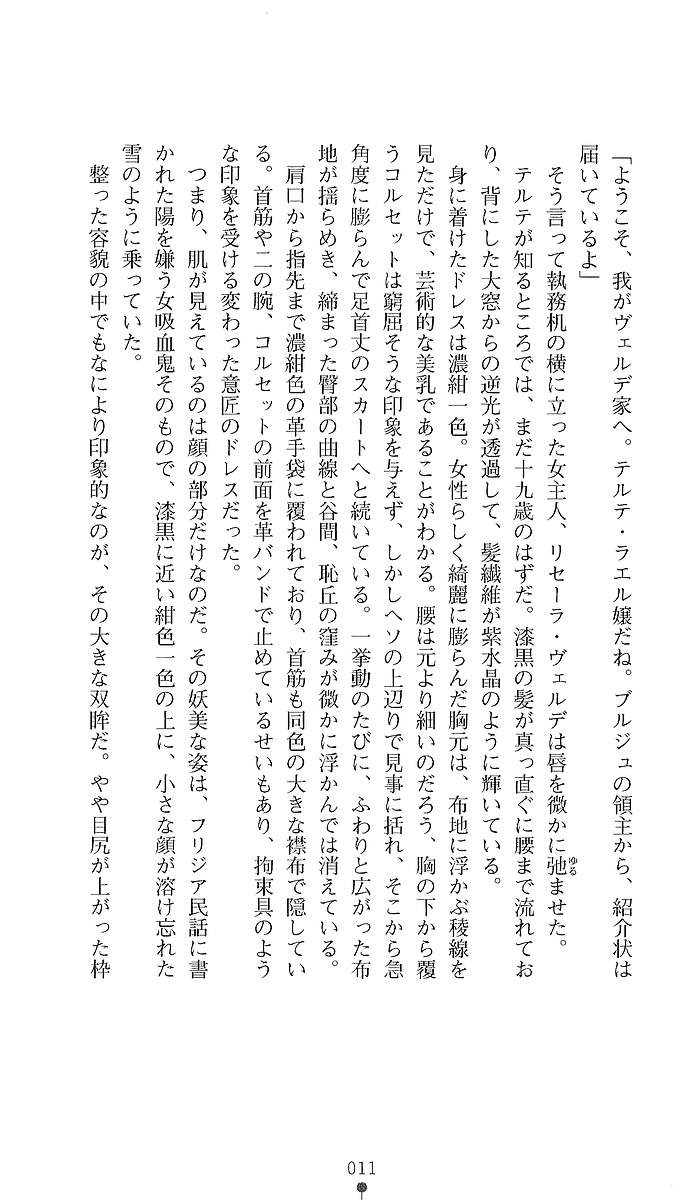 「ようこそ、我がヴェルデ家へ。テルテ・ラエル嬢だね。ブルジュの領主から、紹介状は
届いているよ」
そう言って執務机の横に立った女主人、リセーラ・ヴェルデは唇を微かに弛ませた。
ゆる
テルテが知るところでは、まだ十九歳のはずだ。漆黒の髪が真っ直ぐに腰まで流れてお
り、背にした大窓からの逆光が透過して、髪繊維が紫水晶のように輝いている。
身に着けたドレスは濃紺一色。女性らしく綺麗に膨らんだ胸元は、布地に浮かぶ稜線を
見ただけで、芸術的な美乳であることがわかる。腰は元より細いのだろう、胸の下から覆
うコルセットは窮屈そうな印象を与えず、しかしヘソの上辺りで見事に括れ、そこから急
角度に膨らんで足首丈のスカートへと続いている。一挙動のたびに、ふわりと広がった布
地が揺らめき、締まった臀部の曲線と谷間、恥丘の窪みが微かに浮かんでは消えている。
肩口から指先まで濃紺色の革手袋に覆われており、首筋も同色の大きな襟布で隠してい
る。首筋や二の腕、コルセットの前面を革バンドで止めているせいもあり、拘束具のよう
な印象を受ける変わった意匠のドレスだった。
つまり、肌が見えているのは顔の部分だけなのだ。その妖美な姿は、フリジア民話に書
かれた陽を嫌う女吸血鬼そのもので、漆黒に近い紺色一色の上に、小さな顔が溶け忘れた
雪のように乗っていた。
整った容貌の中でもなにより印象的なのが、その大きな双眸だ。やや目尻が上がった枠
011